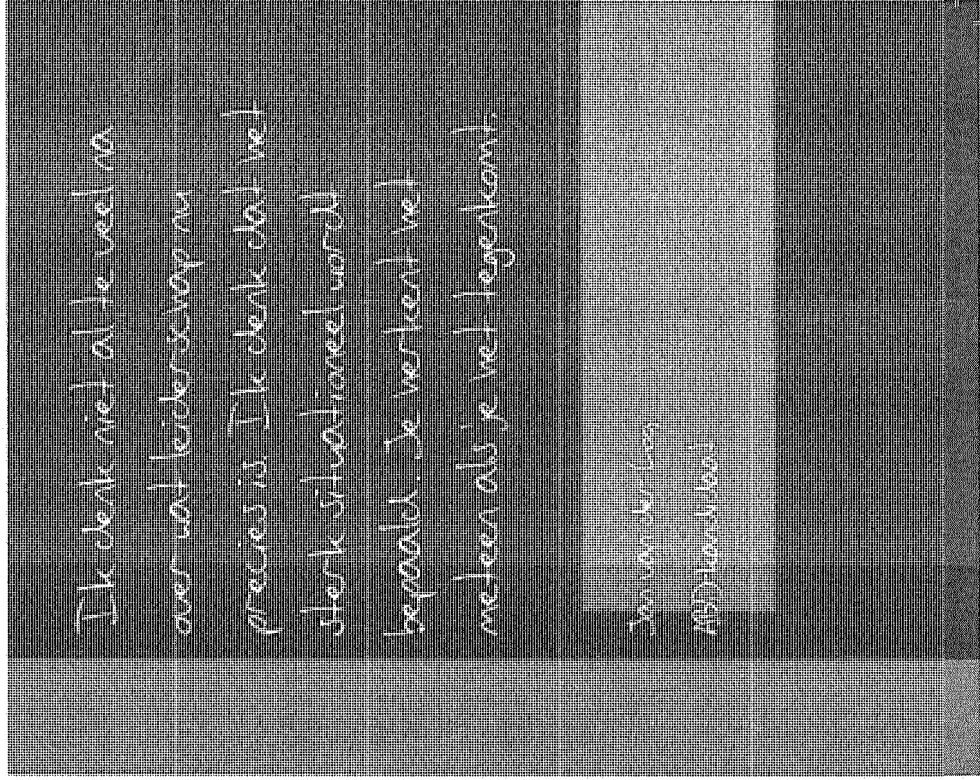 Ik denk niet al te veel na
over wat leiderschap nu
precies is. Ik denk dat het
sterk situationeel wordt
bepaald. Je herkent het
meteen als je het tegenkomt.
Jan van der
ABD-kandidaat